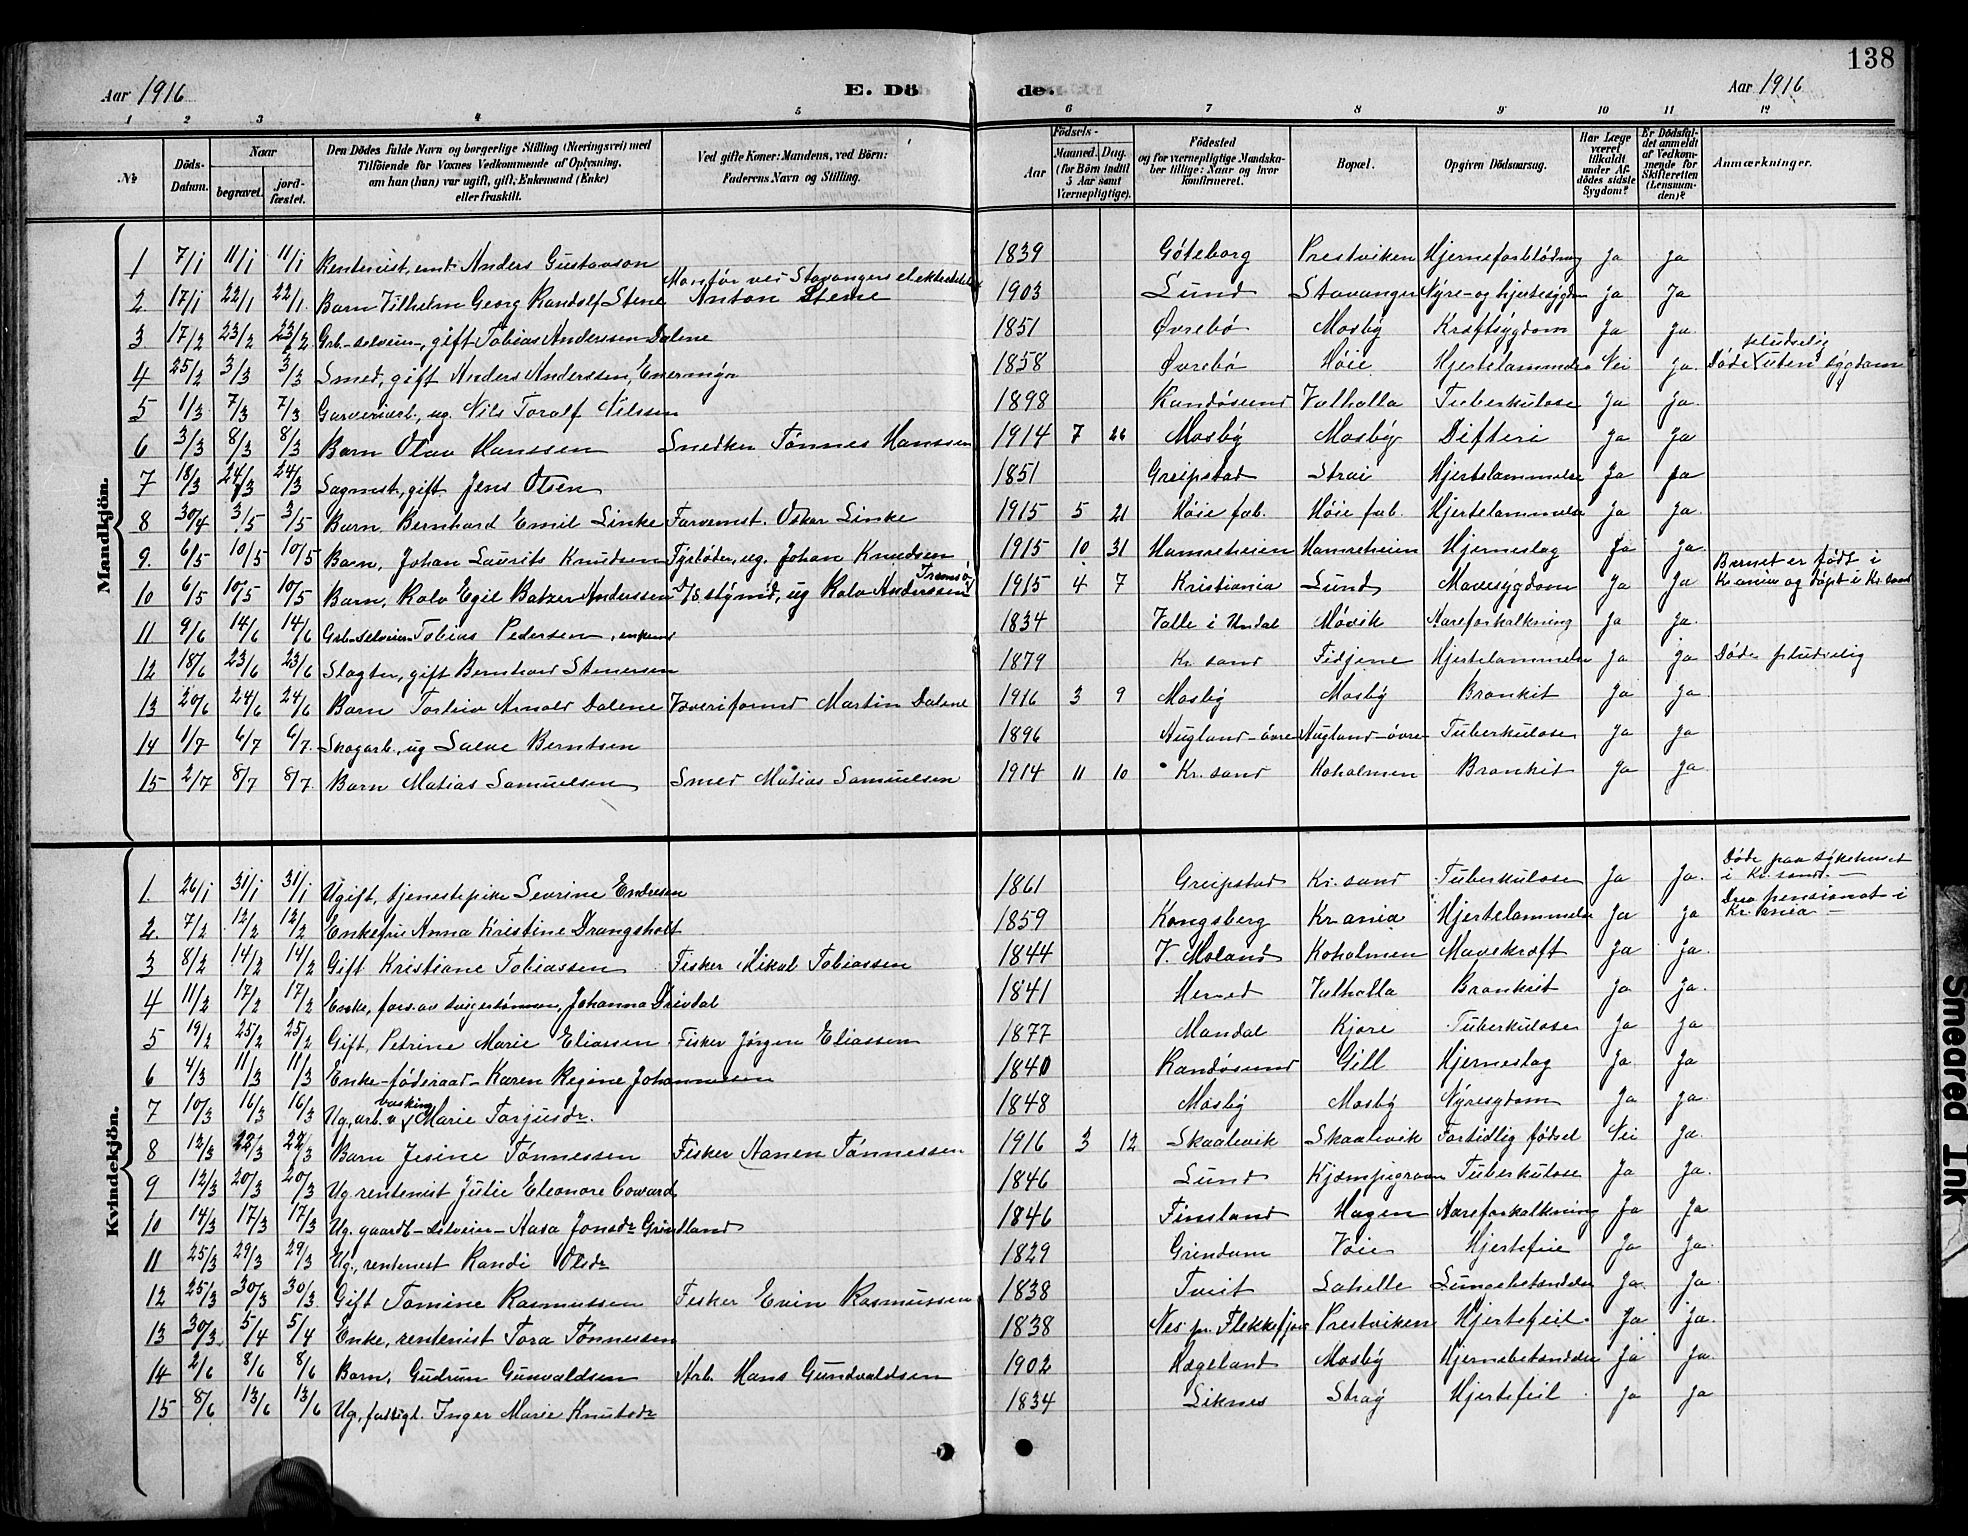 138
Aar 1916 E. Döde. Aar 1916
1 2 3 4 5 6 7 8 9 10 11 12
№
Döds-Datum.
Naar
begravet.
jordfæstet.
Den Dödes fulde Navn og borgerlige Stilling (Næringsvei) med Tilföiende for Voxnes Vedkommende af Oplysning, om han (hun) var ugift, gift, Enkemand (Enke) eller fraskilt.
Ved gifte Koner: Mandens, ved Börn: Faderens Navn og Stilling.
Födsels-
Aar
Maaned. Dag.
(for Börn indtil 5 Aar samt Værnepligtige).
Födested og for værnepligtige Mandskaber tillige: Naar og hvor konfirmeret.
Bopæl.
Opgiven Dödsaarsag.
Har Læge været tilkaldt under Afdödes sidste Sygdom?
Er Dödsfaldet anmeldt af Vedkommende for Skifteretten (Lensmanden)?
Anmærkninger.
Mandkjön.
1 7/1 11/1 11/1 Rentenist, emt. Anders Gustavson 1839 Göteborg Prestviken Hjerneforblödning Ja Ja
2 17/1 22/1 22/1 Barn Vilhelm Georg Randolf Stene Montör ved Stavangers elektricitets Anton Stene 1903 Lund Stavanger Nyre- og hjertesygdom Ja Ja
3 17/2 23/2 23/2 Grb.-selveier, gift Tobias Anderssen Dalene 1851 Øvrebö Mosby Kræftsygdom Ja Ja
4 25/2 3/3 3/3 Smed, gift Anders Anderssen, Enermyr 1858 Øvrebö Höie Hjertelammelse Nei Ja. Döde pludselig uten sygdom
5 1/3 7/3 7/3 Garveriarb., ug. Nils Toralf Nilssen 1898 Randösund Valhalla Tuberkulose Ja Ja.
6 3/3 8/3 8/3 Barn Olav Hanssen Snedker Tönnes Hanssen 1914 7 26 Mosby Mosby Difteri Ja Ja
7 18/3 24/3 24/3 Sagmest., gift Jens Olsen 1851 Greipstad Strai Hjertelammelse Ja Ja
8 30/4 3/5 3/5 Barn, Bernhard Emil Linke Farvemst. Oskar Linke 1915 5 21 Höie fab. Höie fab. Hjertelammelse Ja Ja.
9. 6/5 10/5 10/5 Barn, Johan Laurits Knudsen Fyrböter, ug. Johan Knudsen 1915 10 31 Hamreheien Hamreheien Hjerneslag Ja Ja.
10 6/5 10/5 10/5 Barn, Rolv Egil Balzer Anderssen D/S styrmd, ug Rolv Anderssen Tromsö 1915 4 7 Kristiania Lund Mavesygdom Ja Ja Barnet er födt i Kr.ania og döpt i Kr.sand
11 9/6 14/6 14/6 Grb.-selveier Tobias Pedersen, enkemd 1834 Valle i Undal Mövik Aareforkalkning Ja Ja.
12 18/6 23/6 23/6 Slagter, gift Bernhard Stenersen 1879 Kr.sand Fidjene Hjertelammelse Ja Ja Döde pludselig
13 20/6 24/6 24/6 Barn Torleiv Arnold Dalene Væveriformd Martin Dalene 1916 3 9 Mosby Mosby Bronkit Ja Ja.
14 1/7 6/7 6/7. Skogarb., ug Salve Berntsen 1896 Augland-övre Augland-övre Tuberkulose Ja Ja
15 2/7 8/7 8/7. Barn Matias Samuelsen Smed Matias Samuelsen 1914 11 10 Kr.sand Koholmen Bronkit Ja Ja.
Kvindekjön.
1. 26/1 31/1 31/1 Ugift, tjenestepike Severine Endresen 1861 Greipstad Kr.sand Tuberkulose Ja Ja. Döde paa sykehuset i Kr.sand.
2. 7/2 12/2 12/2 Enkefru Anna Kristine Drangsholt 1859 Kongsberg Kr.ania Hjertelammelse Ja Ja Drev pensionat i Kr.ania
3 8/2 14/2 14/2 Gift Kristiane Tobiassen Fisker Mikal Tobiassen 1844 V. Moland Koholmen Mavekræft Ja Ja.
4 11/2 17/2 17/2 Enke, fors. av svigersönnen, Johanna Drivdal 1841 Herred Valhalla Bronkit Ja Ja.
5 19/2 25/2 25/2 Gift, Petrine Marie Eliassen Fisker Jörgen Eliassen 1877 Mandal Kjöre Tuberkulose Ja Ja
6 4/3 11/3 11/3 Enke-föderaad- Karen Regine Johannessen 1840 Randösund Gill Hjerneslag Ja Ja.
7 10/3 16/3 16/3 Ug. arb. v. vasking Marie Torjusdr. 1848 Mosby Mosby Nyresygdom Ja Ja.
8 12/3 22/3 22/3 Barn Jesine Tönnessen Fisker Hanen Tönnessen 1916 3 12 Skaalevik Skaalevik Fortidlig födsel Nei Ja.
9 12/3 20/3 20/3 Ug. rentenist Julie Eleonore Coward 1846 Lund Kjæmpegraven Tuberkulose Ja Ja.
10 14/3 17/3 17/3 Ug. gaardb-selveier- Aasa Jonsdr Grindland 1846 Finsland Hagen Aareforkalkning Ja Ja
11 25/3 29/3 29/3 Ug., rentenist Randi Olsdr 1829 Grindum Vaie Hjertefeil Ja Ja.
12 25/3 30/3 30/3. Gift Tomine Rasmussen Fisker Evin Rasmussen 1838 Tveit Lahelle Lungebetændelse Ja. Ja
13 30/3. 5/4 5/4 Enke, rentenist Tora Tönnessen 1838 Nes pr. Flekkefjord Prestviken Hjertefeil. Ja Ja.
14 2/6 8/6 8/6 Barn, Gudrun Gunvaldsen Arb. Hans Gundvaldsen 1902 Hægeland Mosby Hjernebetændelse Ja Ja.
15 8/6 13/6 13/6 Ug., fattigl. Inger Marie Knutsdr 1834 Liknes Stray Hjertefeil. Ja Ja
Smeared Ink